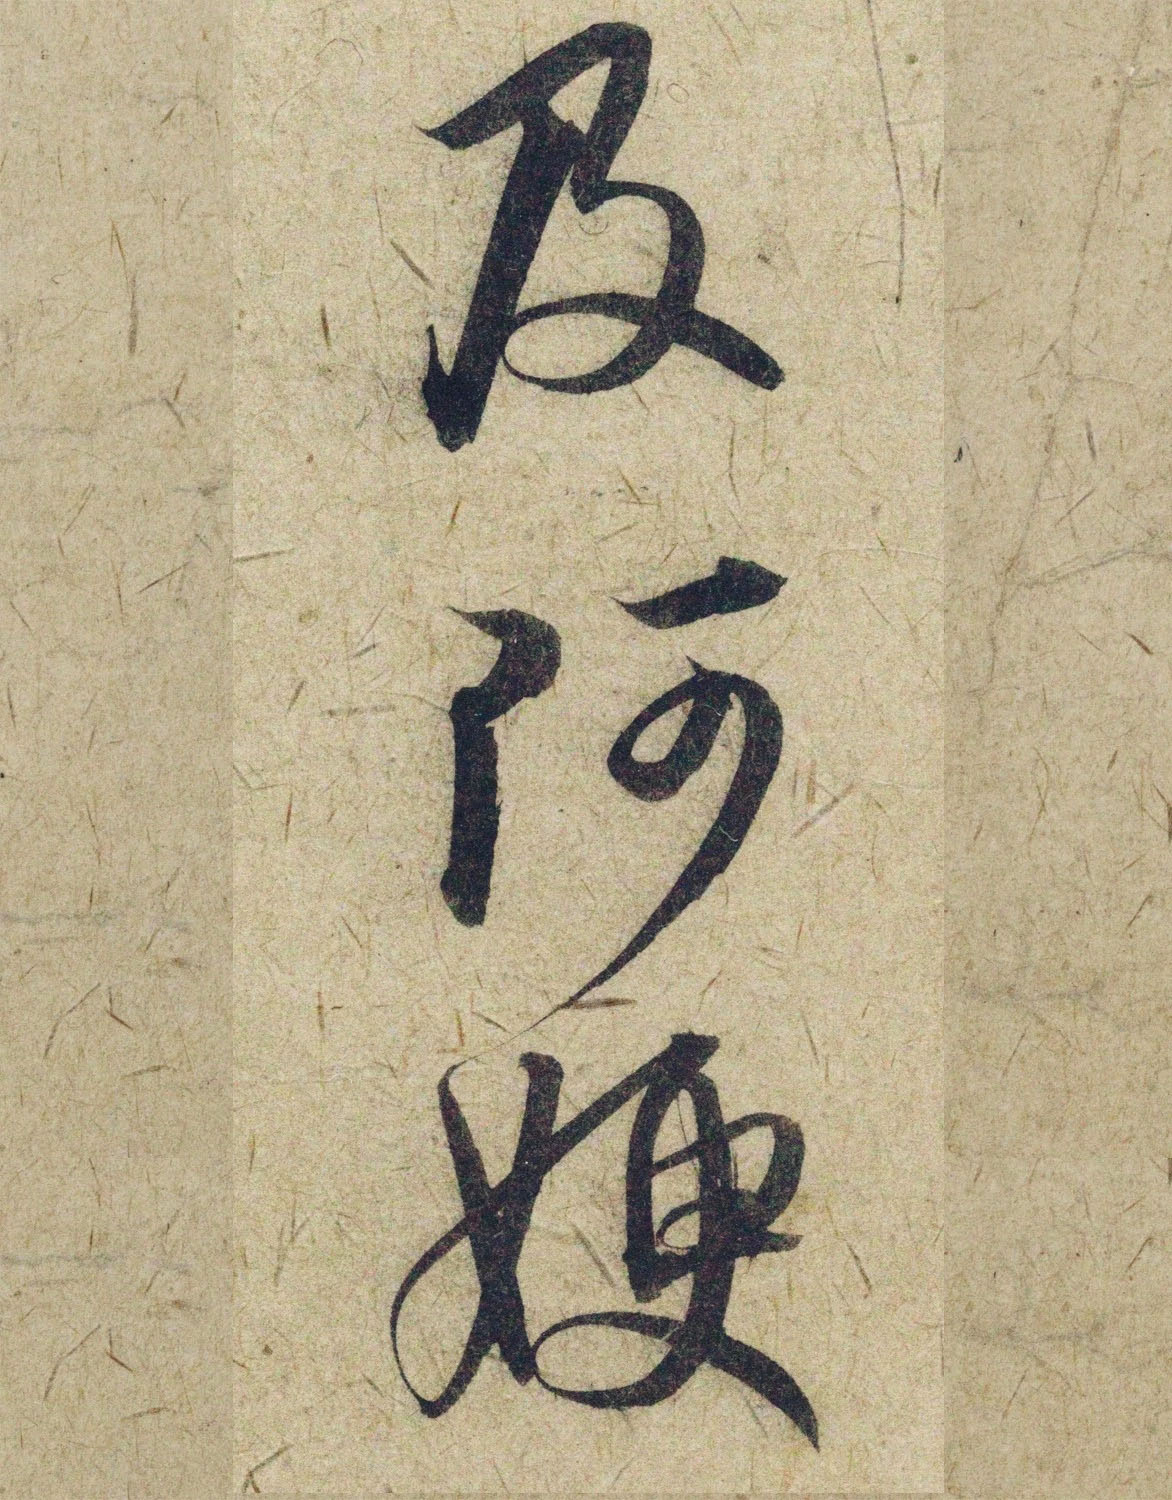 及阿嫂